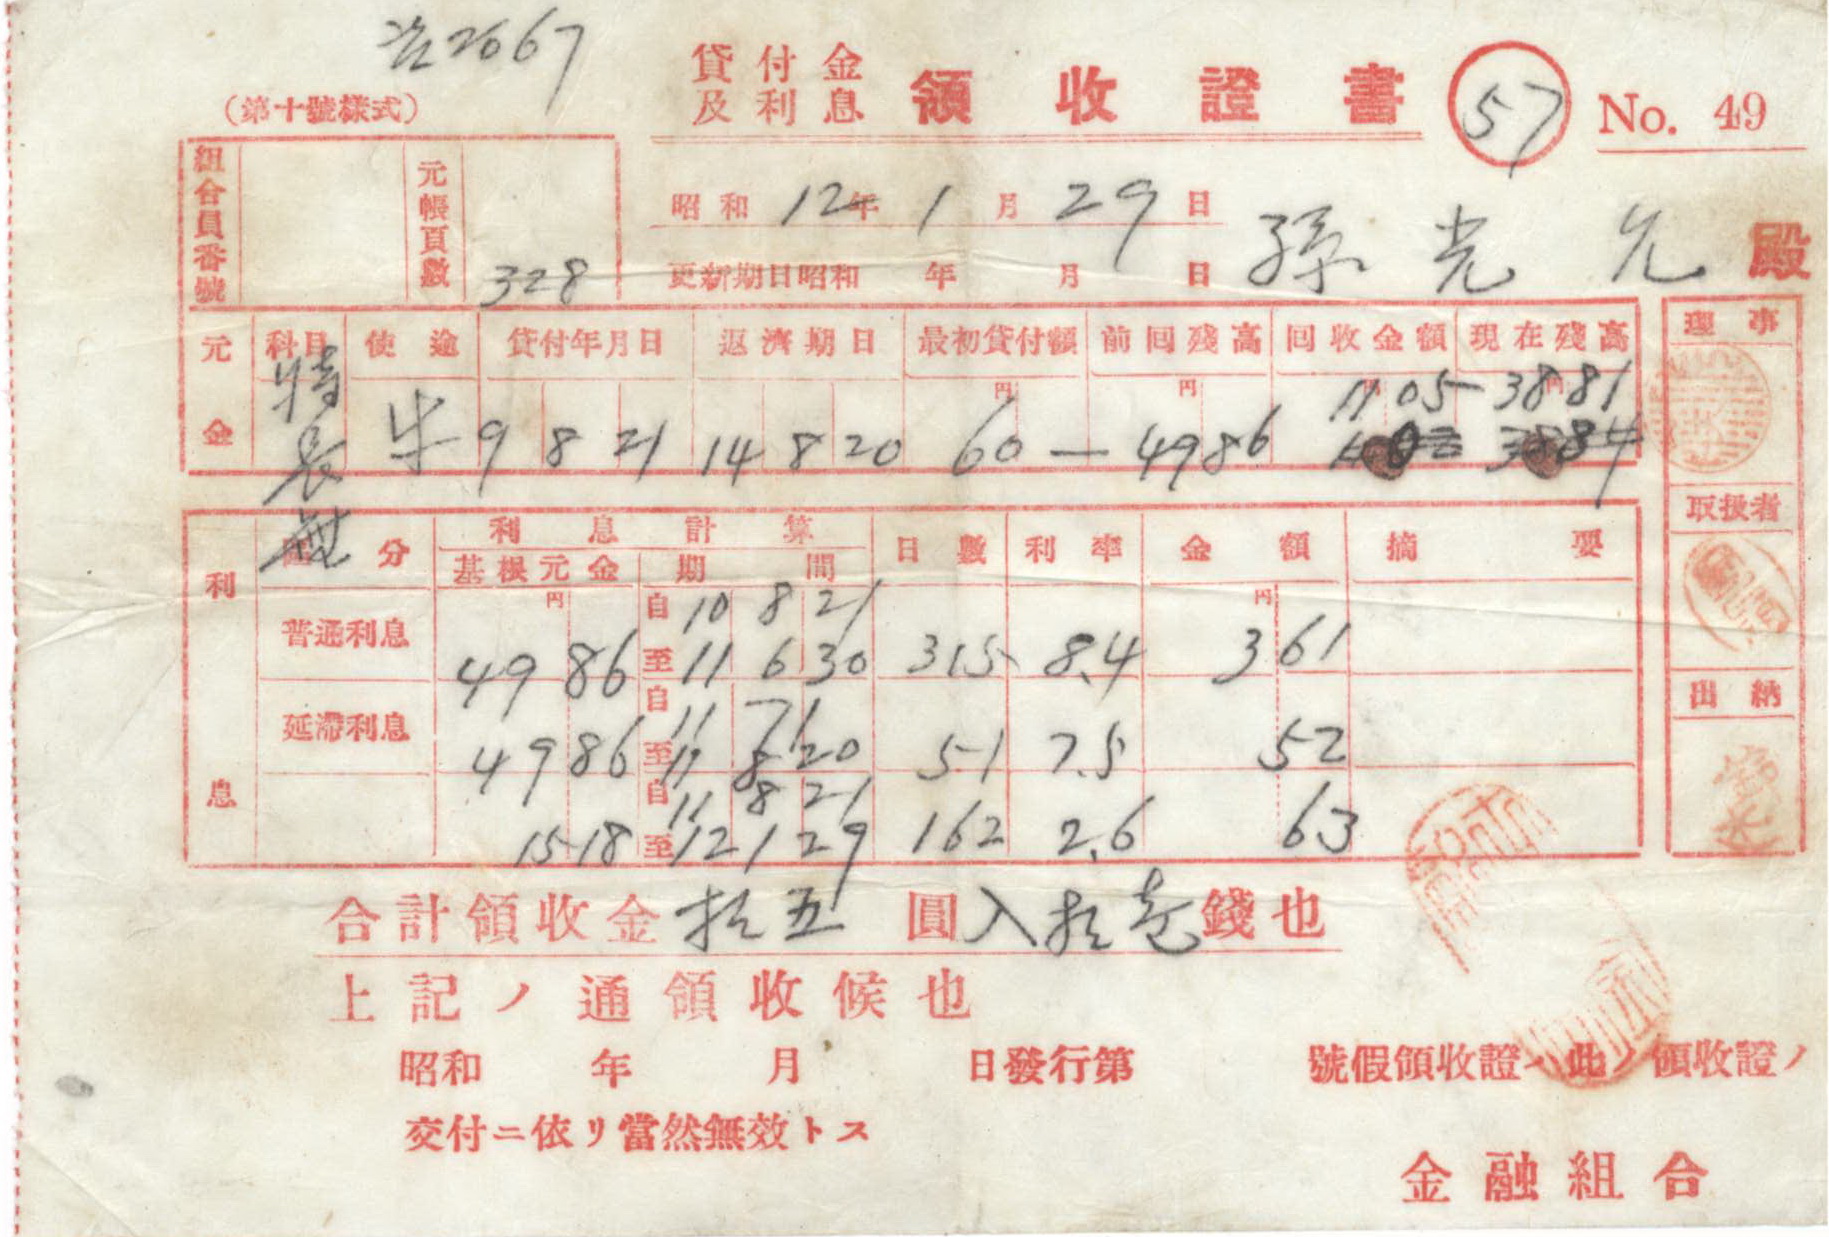 2667
貸付金
及利息 領收證書 57 No. 49
(第十號樣式)
組合員番號 元帳頁數 328
昭和 12年 1月 29日
更新期日昭和 年 月 日
孫光允 殿
元金 科目 使途 貸付年月日 返濟期日 最初貸付額 前回残高 回收金額 現在残高
円 円
特長無 牛 9 8 21 14 8 20 60— 4986 1105 3881
理事
取扱者
出納
利息 區分 利息計算 日數 利率 金額 摘要
基根元金 期間
普通利息 円 4986 自 10 8 21 至 11 6 30 315 8.4 円 361
延滯利息 4986 自 11 7 1 至 11 8 20 51 7.5 52
1518 自 11 8 21 至 12 1 29 162 2.6 63
合計領收金 拾五 圓 八拾壱 錢也
上記ノ通領收候也
昭和 年 月 日發行第 號假領收證ハ此ノ領收證ノ
交付ニ依リ當然無效トス
金融組合